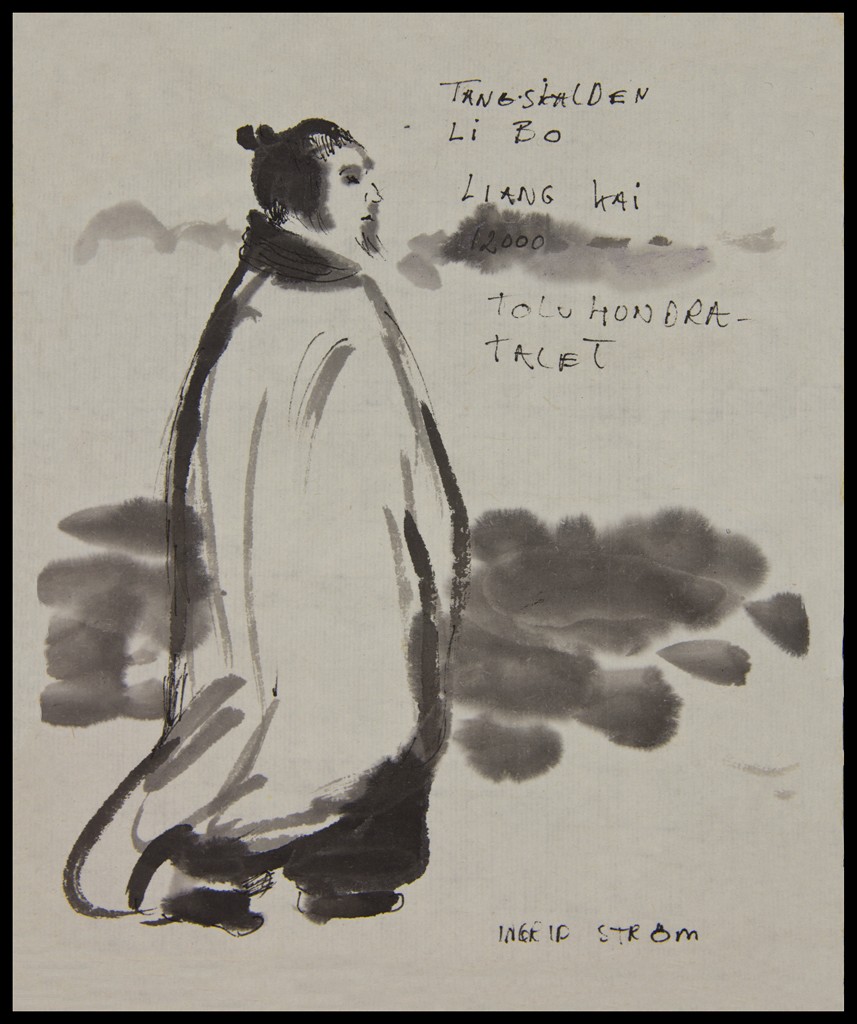 TANG-SKALDEN
Li BO
LIANG KAi
12000
TOLV HONDRA-
TALET
INGRID STRÖM